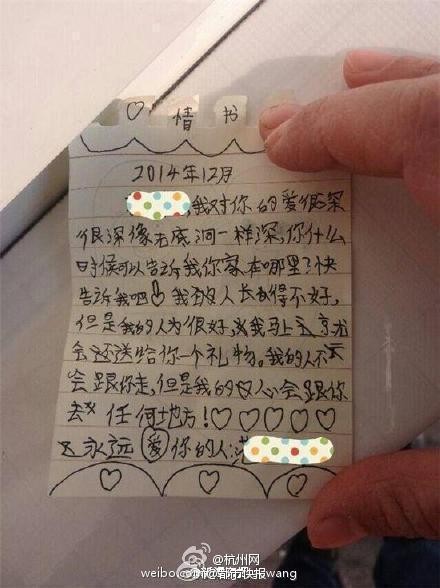 ♡ 情 书
2014年12月
,我对你的爱很深
很深像无底洞一样深,你什么
时候可以告诉我你家在哪里?快
告诉我吧!我 人长 得不好,
但是我的人为很好,我马上
会还送给你一个礼物。我的人不
会跟你走,但是我的心会跟你
去 任何地方!♡♡♡♡♡
永远爱你的人:
@杭州网